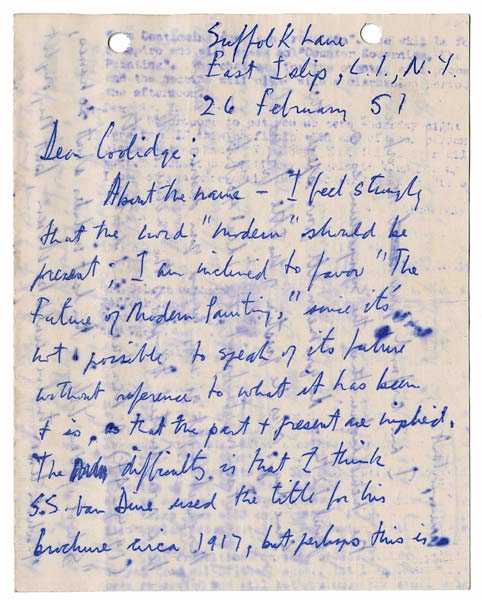 Suffolk Lane
East Islip, L.I., N.Y.
26 February 51
Dear Coolidge:
About the name – I feel strongly
that the word "modern" should be
present; I am inclined to favor "The
Future of Modern Painting," since it's
not possible to speak of its future
without reference to what it has been
+ is, so that the past + present are implied.
The difficulty is that I think
S.S. Van Dine used the title for his
brochure circa 1917, but perhaps this is